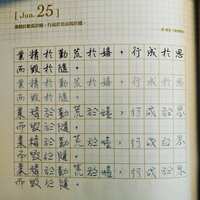 [ Jan. 25 ]
業精於勤荒於嬉，行成於思
而毀於隨。
業精於勤荒於嬉，行成於思
而毀於隨。
業精於勤荒於嬉，行成於思
而毀於隨。
業精於勤荒於嬉，行成於思
而毀於隨。